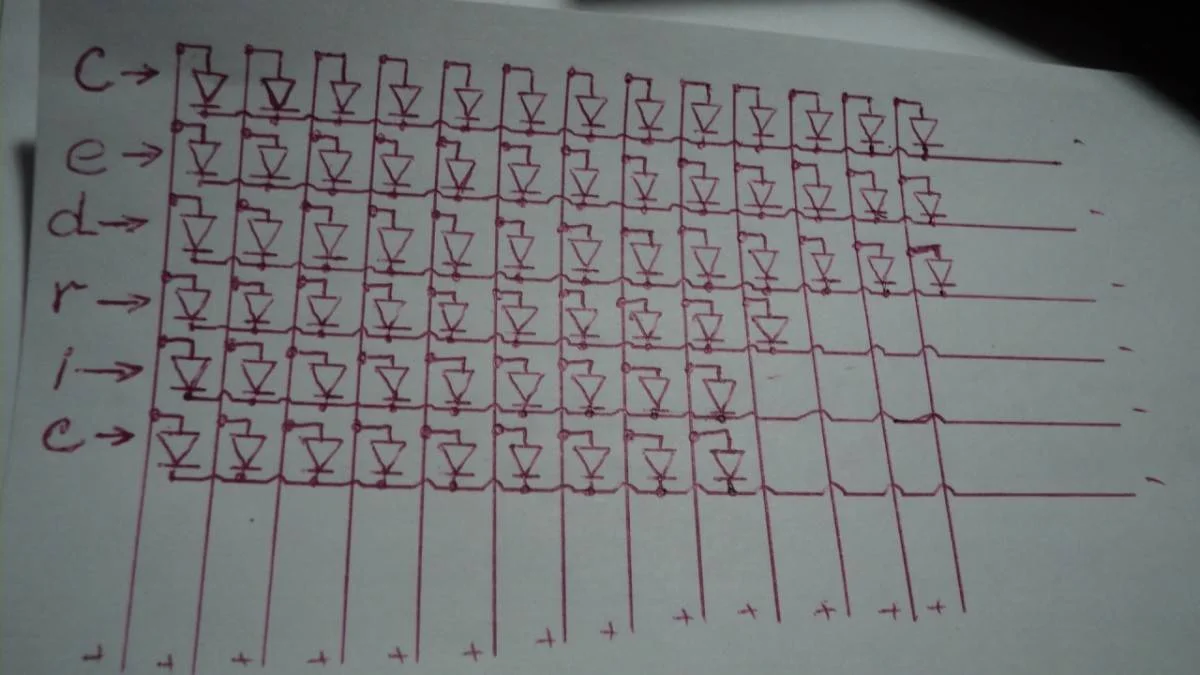 C →
e →
d →
r →
i →
c →
- - - - - -
+ + + + + + + + + + + + +